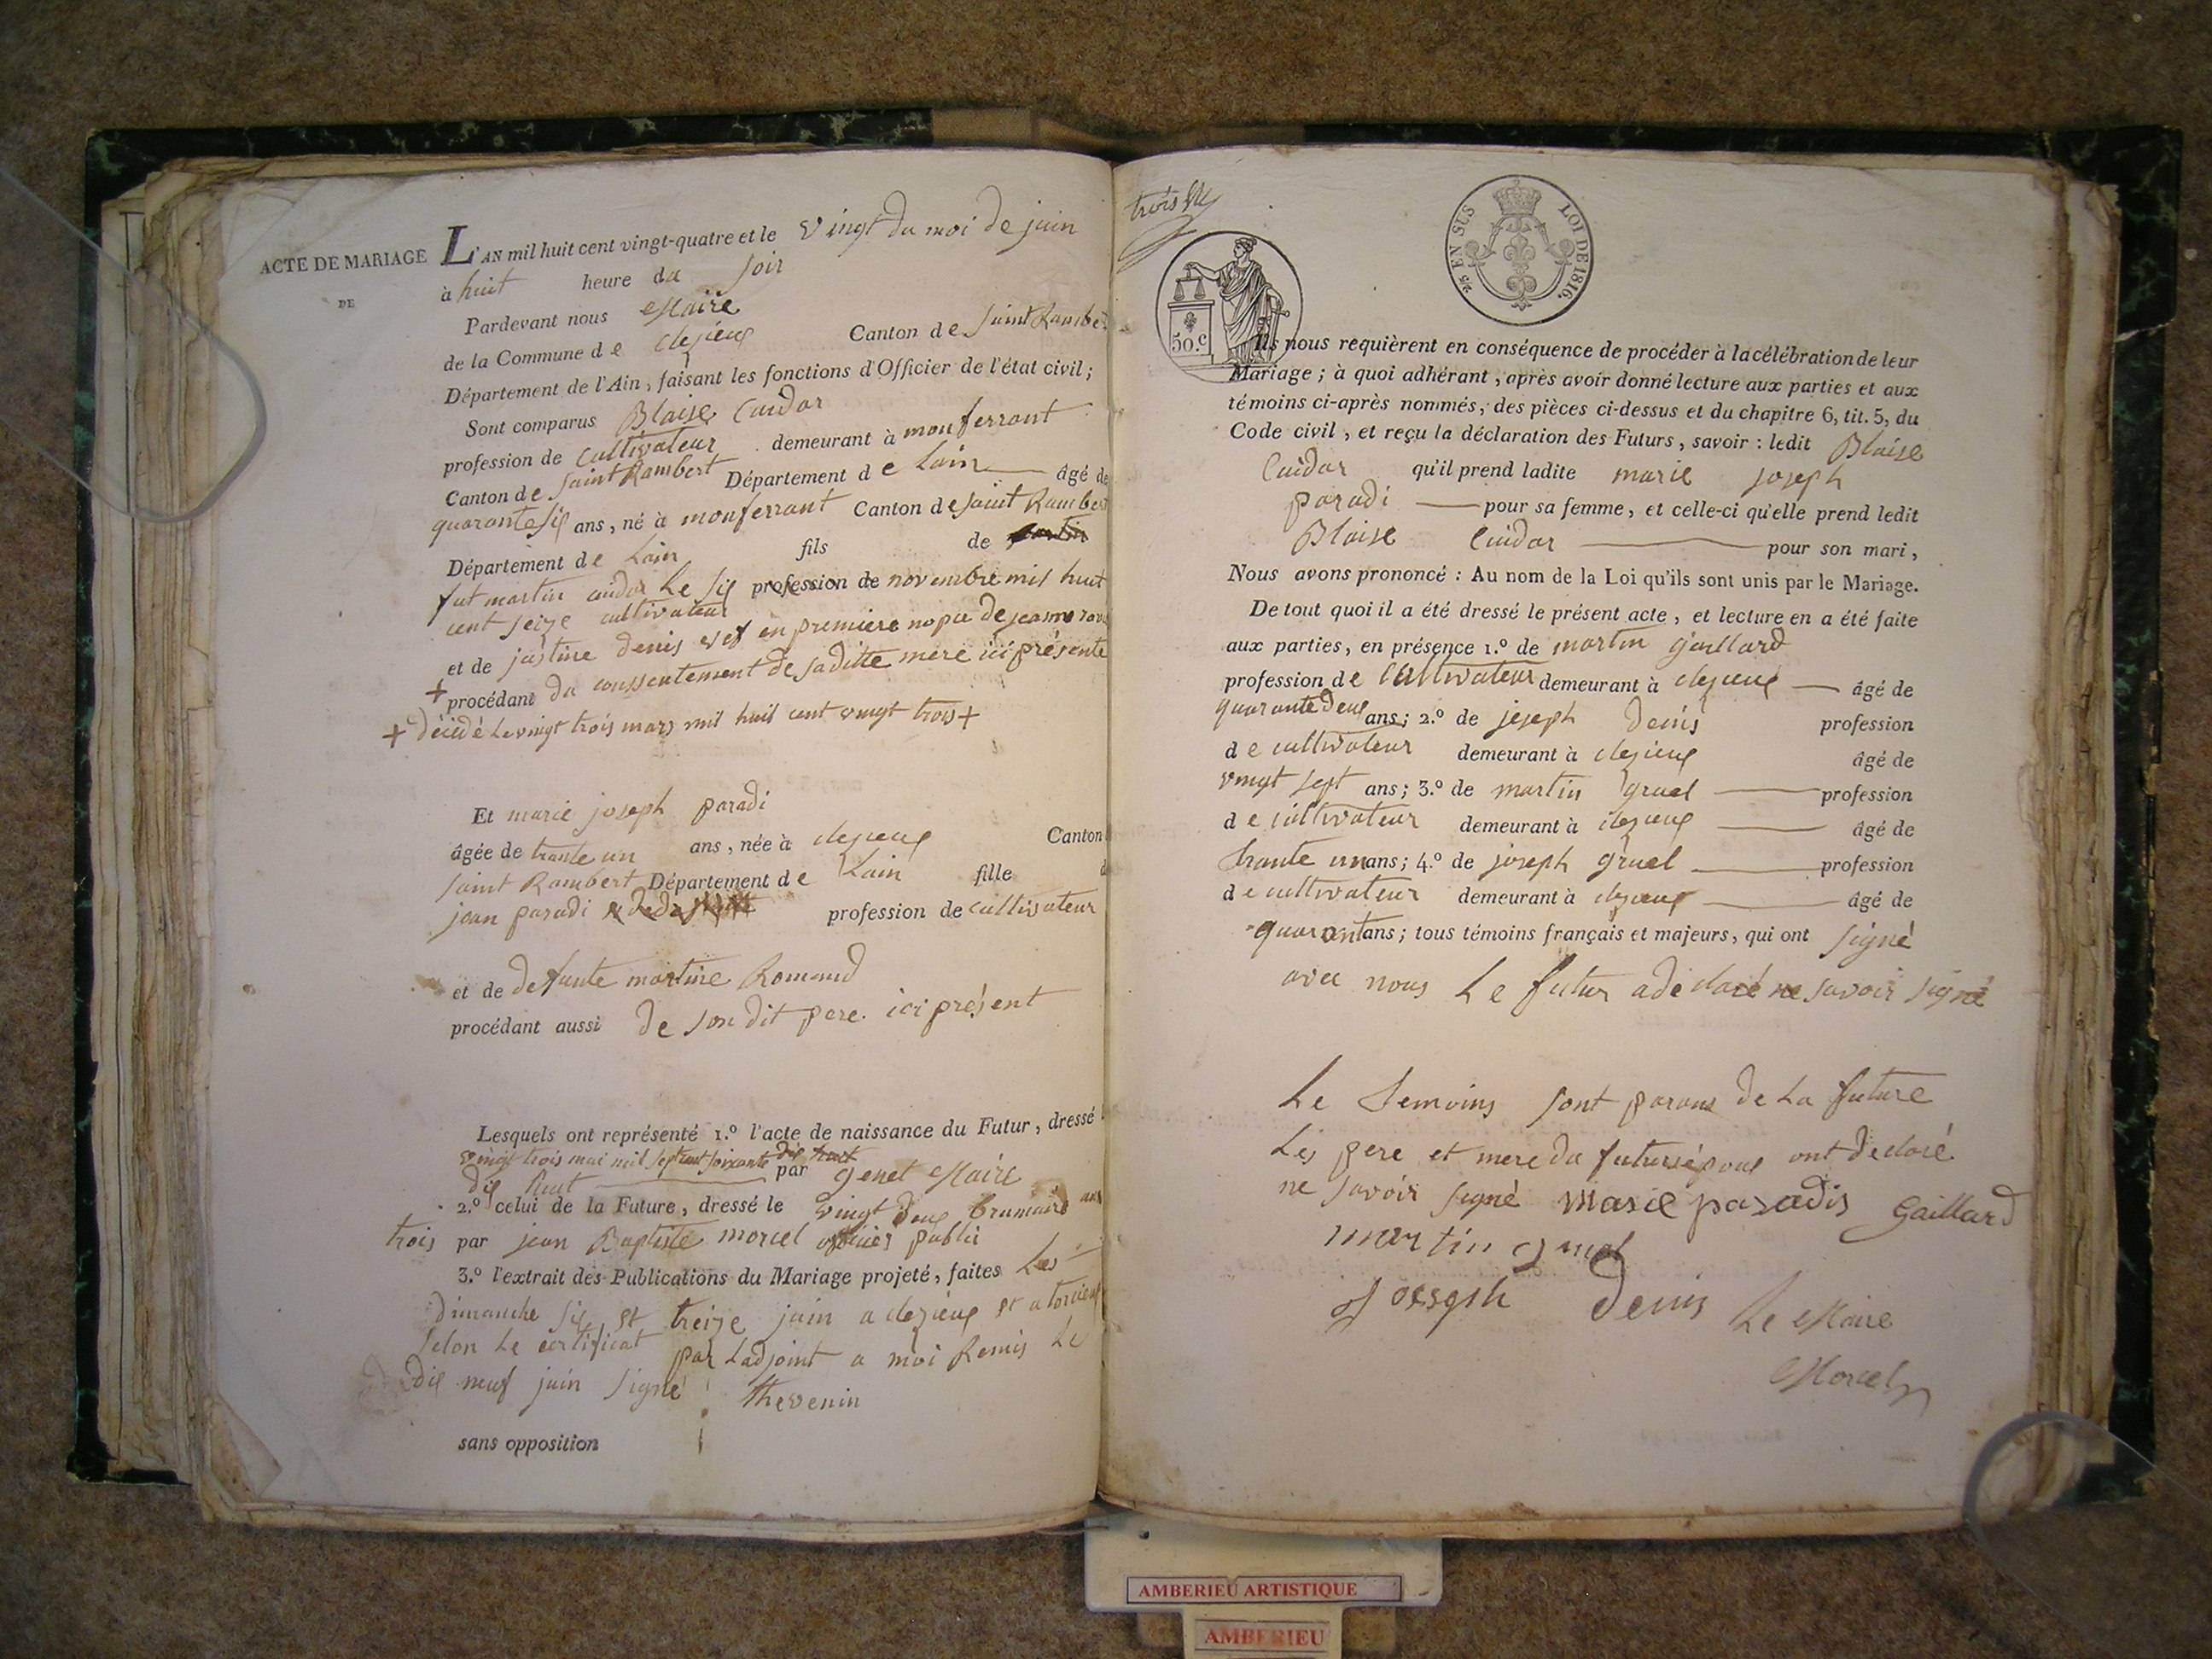 ACTE DE MARIAGE
DE
L'AN mil huit cent vingt-quatre et le vingt du moi de juin
à huit heure du soir
Pardevant nous Maire
de la Commune de clezieux Canton de saint Rambert
Département de l'Ain, faisant les fonctions d'Officier de l'état civil;
Sont comparus Blaise Cuidar
profession de cultivateur demeurant à monferrant
Canton de saint Rambert Département de Lain âgé de
quarante six ans, né à monferrant Canton de saint Rambert
Département de Lain fils de
fut martin cuidar Le six profession de novembre mil huit
cent seize cultivateur
et de justine denis vef en premiere nopce de jeanne
+ procédant du conssentement de saditte mere ici présente
+ décédé Le vingt trois mars mil huit cent vingt trois +
Et marie joseph paradi
âgée de trante un ans, née à clezieux Canton
saint Rambert Département de Lain fille d
jean paradi profession de cultivateur
et de defunte martine Romand
procédant aussi de son dit pere ici présent
Lesquels ont représenté 1.º l'acte de naissance du Futur, dressé
vingt trois mai mil sept cent soixante dix huit
dix huit par genet Maire
2.º celui de la Future, dressé le vingt deux brumaire an
trois par jean Baptiste morcel officier public
3.º l'extrait des Publications du Mariage projeté, faites Les
dimanche six et treize juin a clezieux et a torcieux
selon Le certificat par Ladjoint a moi Remis Le
dix neuf juin signé thevenin
sans opposition
trois
50.c
25 EN SUS LOI DE 1816.
Ils nous requièrent en conséquence de procéder à la célébration de leur
Mariage; à quoi adhérant, après avoir donné lecture aux parties et aux
témoins ci-après nommés, des pièces ci-dessus et du chapitre 6, tit. 5, du
Code civil, et reçu la déclaration des Futurs, savoir: ledit Blaise
Cuidar qu'il prend ladite marie joseph
paradi pour sa femme, et celle-ci qu'elle prend ledit
Blaise Cuidar pour son mari,
Nous avons prononcé: Au nom de la Loi qu'ils sont unis par le Mariage.
De tout quoi il a été dressé le présent acte, et lecture en a été faite
aux parties, en présence 1.º de martin gaillard
profession de cultivateur demeurant à clezieux âgé de
quarante deux ans; 2.º de joseph denis profession
de cultivateur demeurant à clezieux âgé de
vingt sept ans; 3.º de martin gruel profession
de cultivateur demeurant à clezieux âgé de
trante un ans; 4.º de joseph gruel profession
de cultivateur demeurant à clezieux âgé de
quarant ans; tous témoins français et majeurs, qui ont signé
avec nous Le futur a declaré ne savoir signé
Le temoins sont parans de La future
Les pere et mere du futurs époux ont declaré
ne savoir signé marie paradis Gaillard
martin gruel
joesgph denis Le Maire
Morcel
AMBERIEU ARTISTIQUE
AMBERIEU